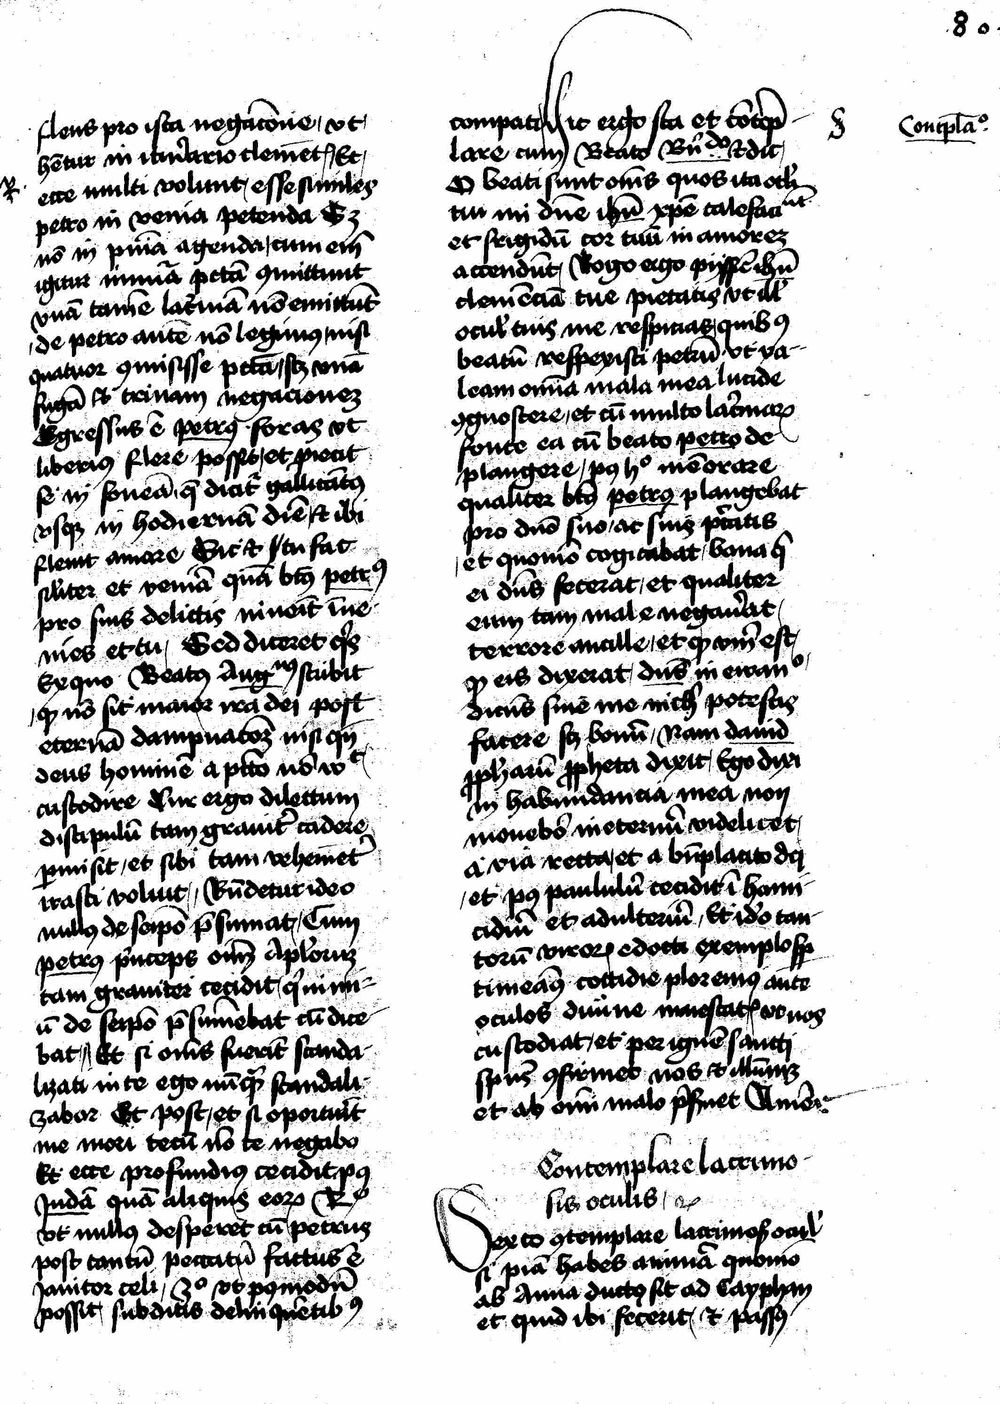 80.
flens pro ista negac̄one, vt
hētur in itin̄ario clemēt, Et
ecce multi volunt, esse similes
petro in venia petenda Sz
nō in pn̄ia agenda, cum em̄
igitur innūa pctā ꝯmittunt
vnā tamē lac̄mā nō emittūt
de petro autē nō legimus, nisi
quatuor ꝯmisisse pctā, sꝫ vnā
fugā et trinam negacionez
Egressus ē petrꝰ foras vt
liberiꝰ flere posset, et ꝓiecit
se in foueā, q̄ dicit᷑ gallicātꝰ
vsqꝫ in hodiernā diē, et ibi
fleuit amare Sic et tu fac
sil̄iter et veniā quā btꝰ petrꝰ
pro suis delictis inuēit īue
nies et tu, Sed diceret q̄s
Ex quo Beatꝰ Augnꝰ scribit
ꝙ nō sit maior ira dei post
eternā dampnac̄oꝫ nisi qn̄
deus hominē a pctō nō vl̄t
custodire Cur ergo dilectum
discipulū tam grauit᷑ cadere
ꝑmisit, et sibi tam vehemēt᷑
irasci voluit, Rn̄detur ideo
nullꝰ de seipō p̄sumat, Cum
petrꝰ p̄nceps oīm Apl̄orum
tam grauiter cecidit, q̄ nimi-
ū de seipō p̄sumebat cū dice-
bat, Et si om̄s fuerīt scanda-
lizati in te ego nūq̄ꝫ scandali-
zabor Et post, et si oportuīt
me mori tecū nō te negabo
Et ecce profundiꝰ cecidit pꝰ
Judā quā aliquis eoꝝ
vt nullꝰ desperet cū petrus
post tantū peccatū factus ē
Janitor celi, 3º vt pꝰmodū
possit, subditis delinquētibꝰ
compati, Hic ergo sta et cōtēp̄-
lare cum Beato Bn̄do et dic,
O beati sunt om̄s quos ita oc̄li
tui mi dn̄e ihū xp̄e calefaciūt
et frigidū cor tuū in amorez
accendūt, Rogo ergo pijssīe ihū
clemēciā tue pietatis vt ill̄
ocul̄ tuis me respicias, quibꝰ
beatū respexisti petrū, vt va-
leam oīna mala mea lucide
ꝯgnoscere, et cū multo lac̄maꝝ
fonte ea cū beato petro de
plangere, pꝰ hº memorare
qualiter btꝰ petrꝰ plangebat
pro dn̄o suo, ac suis pctātis
et quomō cogitabat, bona q̄
ei dn̄s fecerat, et qualiter
eum tam male negau̔at,
terrore ancille, et ꝙ vm̄ est,
ꝙ eis dixerat, dn̄s in ewanº
dicēs sine me nich̄ potestis
facere sꝫ bonū, Nam dauid
ꝓph̄arū ꝓpheta dixit, Ego dixi
in habundancia mea non
mouebor in eternū videlicet,
a via recta, et a bn̄placito dei
et pꝰ paululū cecidit ī homi-
cidiū et adulteriū, Et idº tan-
torū viroꝝ edocti exemplo sp̄
timeāꝰ cottidie ploremꝰ ante
oculos diuine maiestat, vt nos
custodiat, et per ignē sancti
spūs ꝯfirmet nos et illūinꝫ
et ab om̄i malo p̄seruet Amēn
Contemplare lacrimo-
sis oculis,
Sexto ꝯtemplare lacrimosꝭ ocul̄
si piā habes animā quomo
ab Anna ductꝰ sit ad Cayphan
et quid ibi fecerit, et passꝰ
§ Conteplaº.